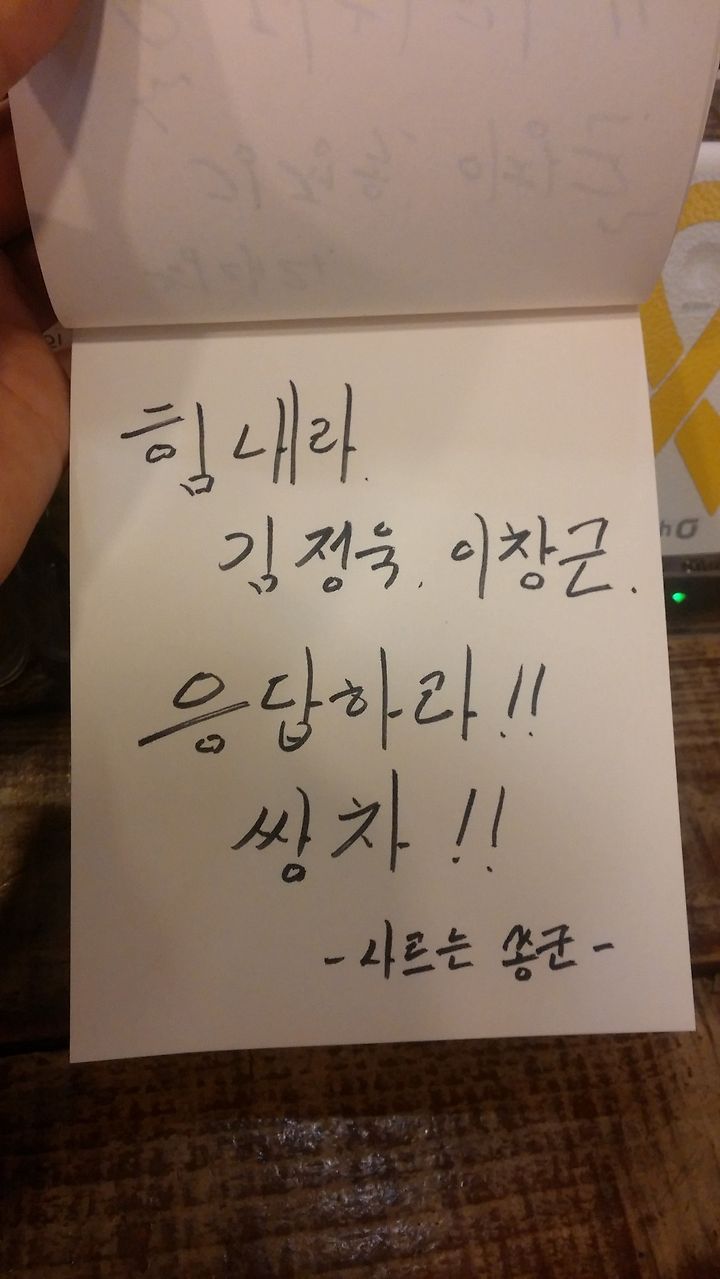 힘내라.
김정욱. 이창근.
응답하라!!
쌍차!!
-사르는 쏭군-